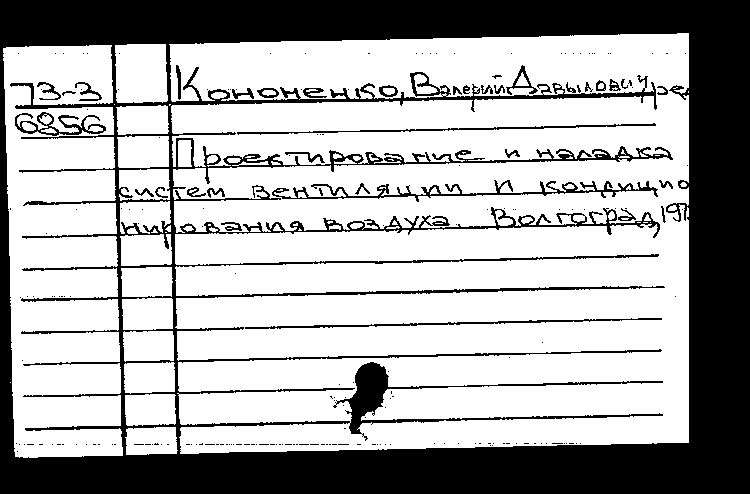 73-3 Кононенко, Валерий Давыдович, ред
6856
Проектирование и наладка
систем вентиляции и кондицио
нирования воздуха. Волгоград, 197